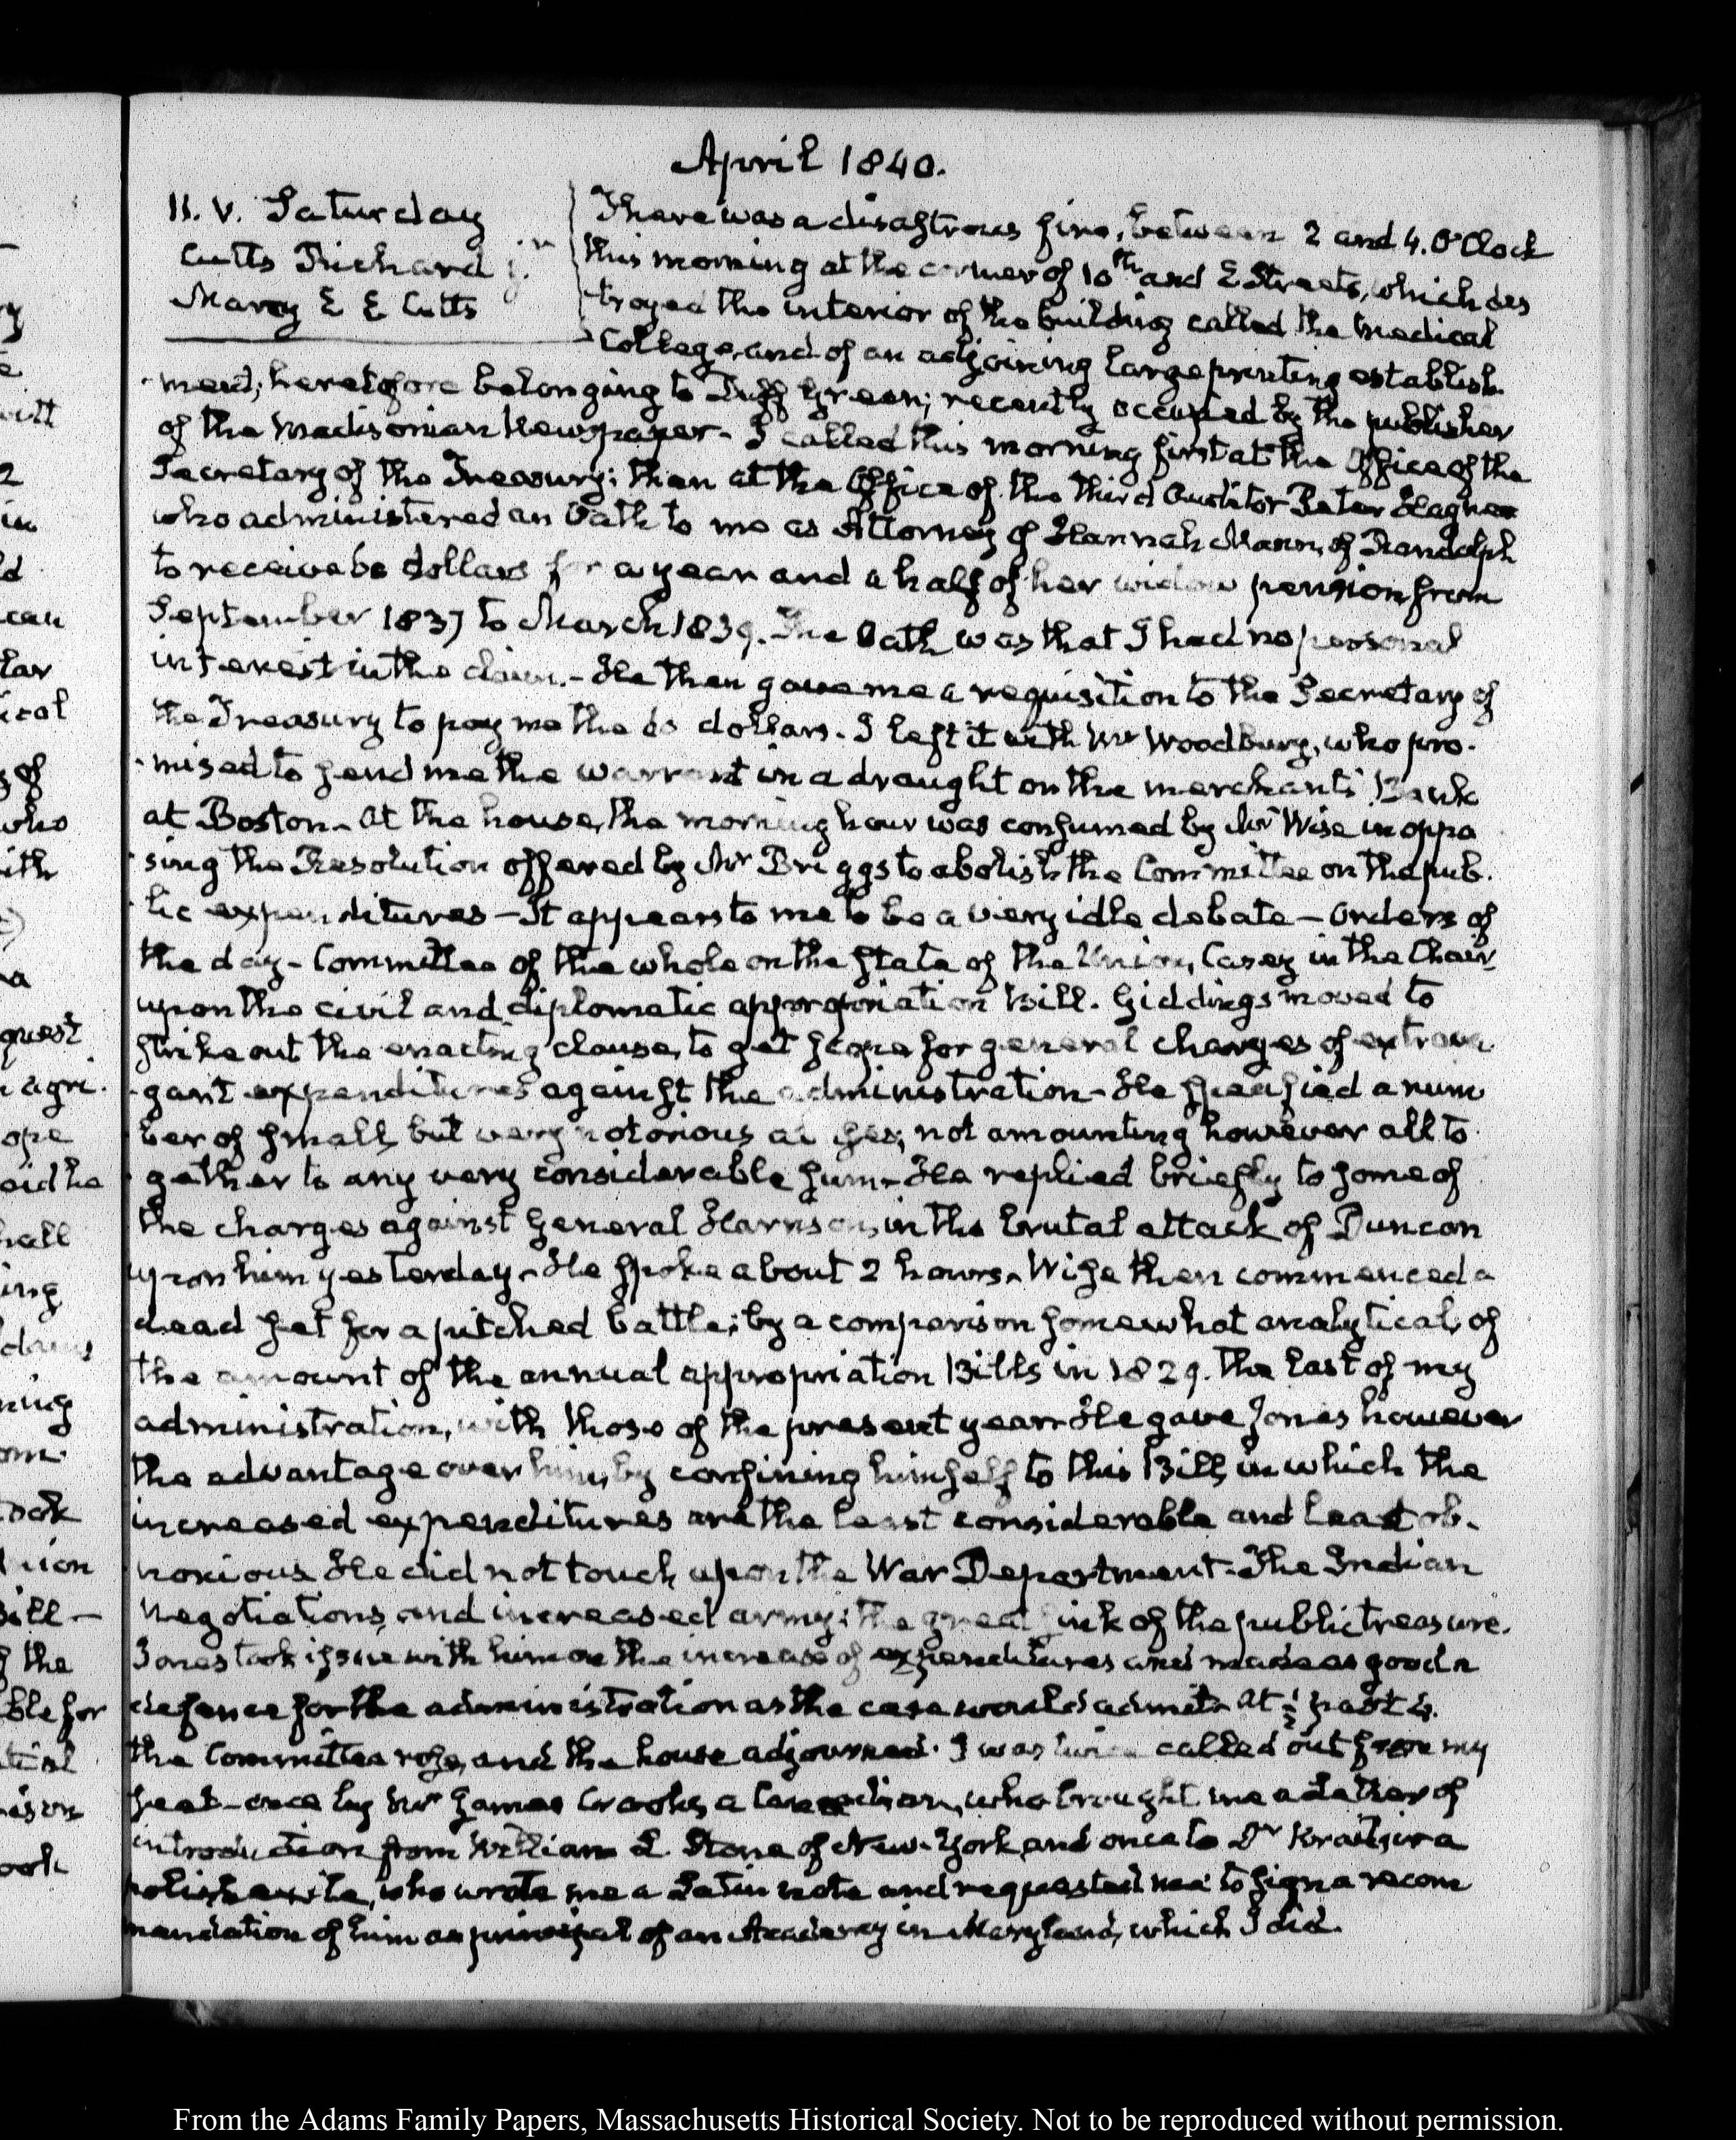 April 1840.
11. V. Saturday
Cutts Richard jr
Mary E E Cutts
There was a disastrous fire, between 2 and 4. O'Clock
this morning at the corner of 10th and E Streets, which des
troyed the interior of the building called the Medical
College, and of an adjoining large printing establish.
ment; heretofore belonging to Duff Green; recently occupied by the publisher
of the Madisonian Newspaper. I called this morning first at the Office of the
Secretary of the Treasury; then at the Office of the third Auditor Peter Hagner
who administered an Oath to me as Attorney of Hannah Mann, of Randolph
to receive 60 dollars for a year and a half of her widow pension from
September 1837 to March 1839. The Oath was that I had no personal
interest in the claim.- He then gave me a requisition to the Secretary of
the Treasury to pay me the 60 dollars. I left it with Mr Woodbury, who pro-
mised to send me the warrant in a draught on the merchants' Bank
at Boston- At the house, the morning hour was consumed by Mr Wise in oppo
sing the Resolution offered by Mr Briggs to abolish the Committee on the pub.
lic expenditures - It appears to me to be a very idle debate - Orders of
the day - Committee of the whole on the State of the Union, Casey in the Chair,
upon the civil and diplomatic appropriation Bill. Giddings moved to
strike out the enacting clause, to get scope for general charges of extrava
gant expenditures against the administration - He specified a num
ber of small, but very notorious not amounting however all to
gether to any very considerable sum - He replied briefly to some of
the charges against General Harrison, in the brutal attack of Duncan
upon him yesterday - He spoke about 2 hours. Wise then commenced a
dead set for a pitched battle; by a comparison somewhat analytical, of
the amount of the annual appropriation Bills in 1829. the last of my
administration, with those of the present year. He gave Jones however
the advantage over him, by confining himself to this Bill, in which the
increased expenditures are the least considerable and least ob-
noxious He did not touch upon the War Department. The Indian
Negotiations, and increased army; the great sink of the public treasure.
Jones took issue with him on the increase of expenditures and made as good a
defence for the administration as the case would admit. At ½ past 4.
the Committee rose, and the house adjourned. I was twice called out from my
seat - once by Mr James Crooks, a Canadian, who brought me a Letter of
introduction from William L. Stone of New-York, and once to Dr Kraitsir a
polish exile, who wrote me a Latin note and requested me to sign a recom
mendation of him as principal of an Academy in Maryland, which I did.
From the Adams Family Papers, Massachusetts Historical Society. Not to be reproduced without permission.